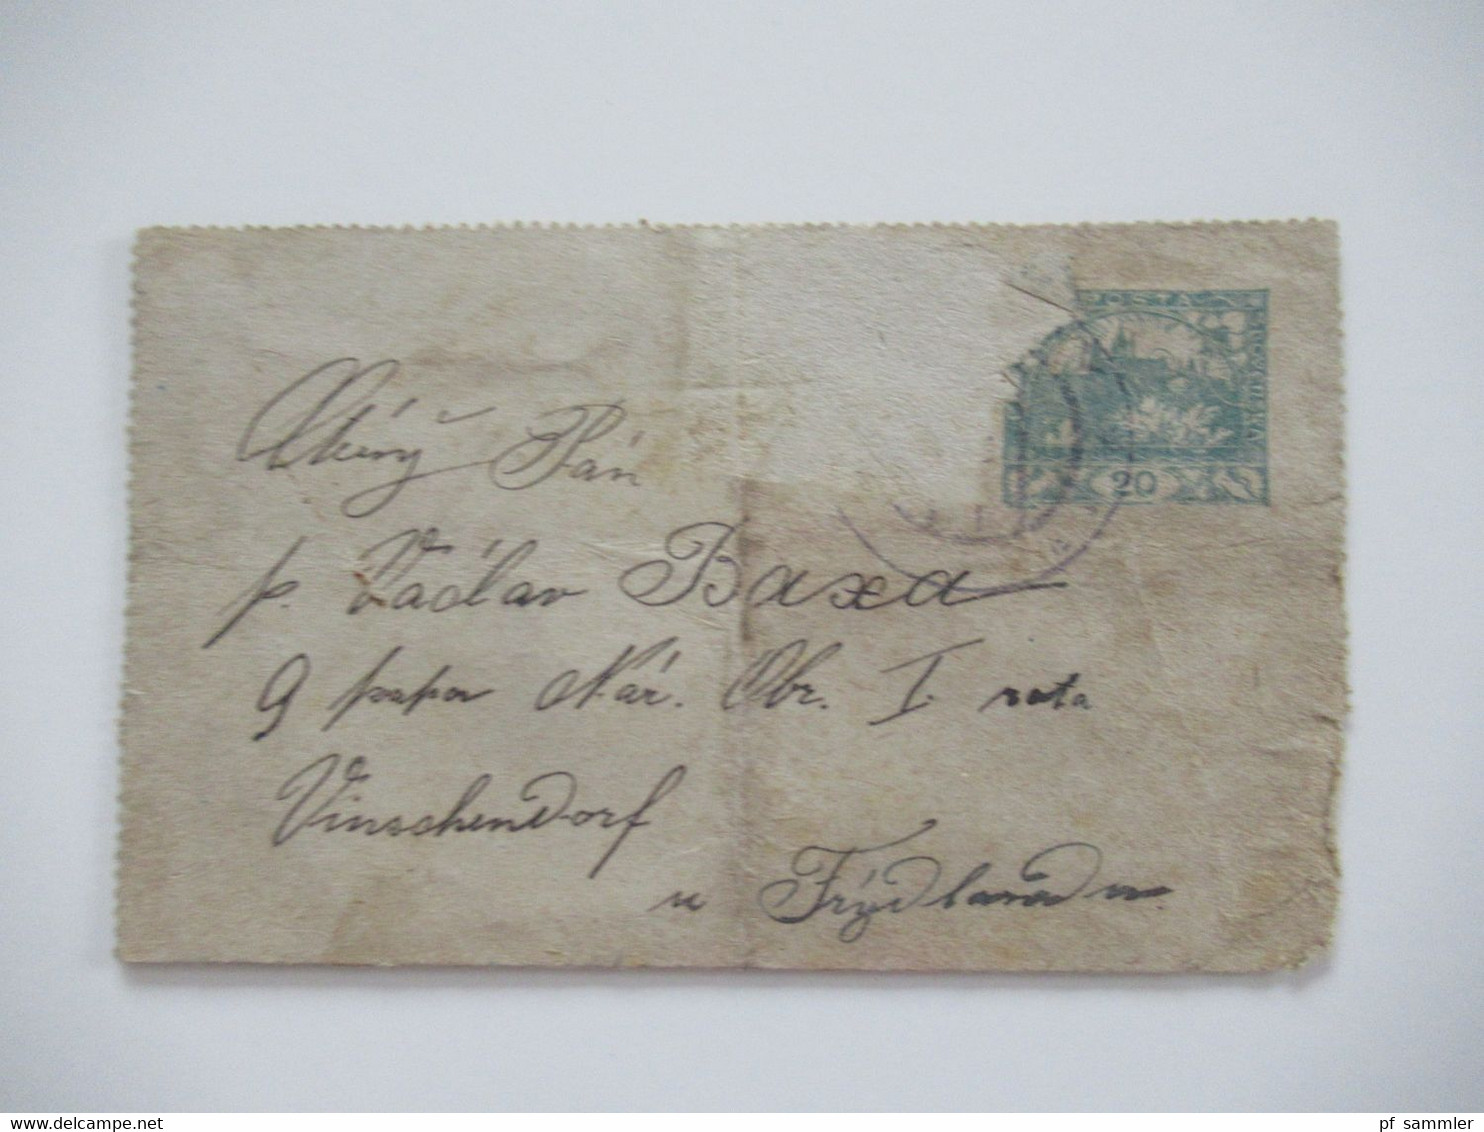 POSTA
20
Ctěný Pán
p. Václav Baxa
9 prapor Nár. Obr. I. rota
Vinschendorf
u Frýdlandu
pf sammler
www.delcampe.net